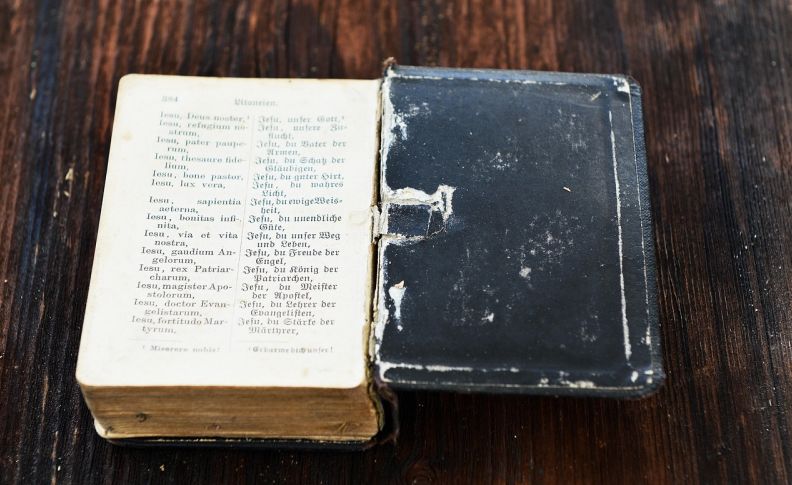 384 Litaneien.
Iesu, Deus noster,¹
Iesu, refugium no-
strum,
Iesu, pater paupe-
rum,
Iesu, thesaure fide-
lium,
Iesu, bone pastor,
Iesu, lux vera,
Iesu, sapientia
aeterna,
Iesu, bonitas infi-
nita,
Iesu, via et vita
nostra,
Iesu, gaudium An-
gelorum,
Iesu, rex Patriar-
charum,
Iesu, magister Apo-
stolorum,
Iesu, doctor Evan-
gelistarum,
Iesu, fortitudo Mar-
tyrum,
¹ Miserere nobis!
Jesu, unser Gott,¹
Jesu, unsere Zu-
flucht,
Jesu, du Vater der
Armen,
Jesu, du Schatz der
Gläubigen,
Jesu, du guter Hirt,
Jesu, du wahres
Licht,
Jesu, du ewige Weis-
heit,
Jesu, du unendliche
Güte,
Jesu, du unser Weg
und Leben,
Jesu, du Freude der
Engel,
Jesu, du König der
Patriarchen,
Jesu, du Meister
der Apostel,
Jesu, du Lehrer der
Evangelisten,
Jesu, du Stärke der
Märtyrer,
¹ Erbarme dich unser!